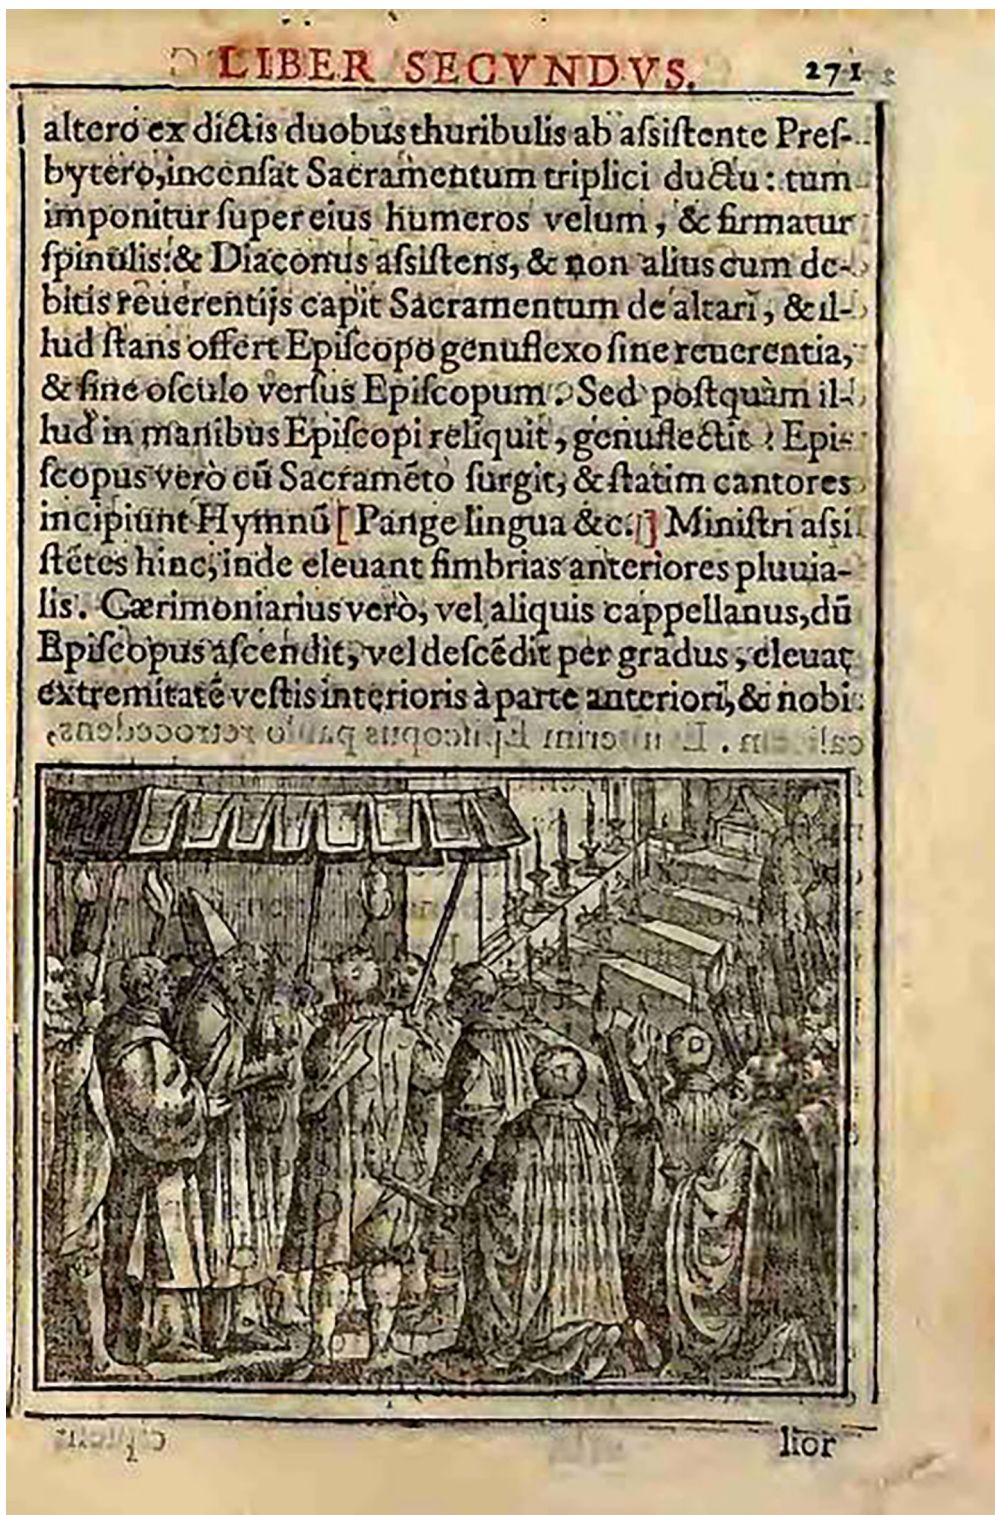 LIBER SECVNDVS. 271
altero ex dictis duobus thuribulis ab aſsiſtente Preſ-
bytero, incenſat Sacramentum triplici ductu: tum
imponitur ſuper eius humeros velum, & firmatur
ſpinulis: & Diaconus aſsiſtens, & non alius cum de-
bitis reuerentijs capit Sacramentum de altari, & il-
lud ſtans offert Epiſcopo genuflexo ſine reuerentia,
& ſine oſculo verſus Epiſcopum. Sed poſtquàm il-
lud in manibus Epiſcopi reliquit, genuflectit: Epi-
ſcopus verò cū Sacramēto ſurgit, & ſtatim cantores
incipiunt Hymnū [Pange lingua &c.] Miniſtri aſsi
ſtētes hinc, inde eleuant fimbrias anteriores pluuia-
lis. Cærimoniarius verò, vel aliquis cappellanus, dū
Epiſcopus aſcendit, vel deſcēdit per gradus, eleuat
extremitatē veſtis interioris à parte anteriori, & nobi
lior